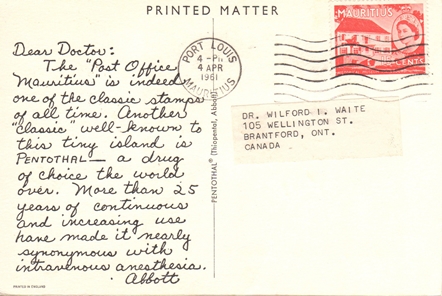 PRINTED MATTER
Dear Doctor:
The "Post Office
Mauritius" is indeed
one of the classic stamps
of all time. Another
"classic" well-known to
this tiny island is
PENTOTHAL — a drug
of choice the world
over. More than 25
years of continuous
and increasing use
have made it nearly
synonymous with
intravenous anesthesia.
Abbott
PRINTED IN ENGLAND
PENTOTHAL® (Thiopental, Abbott)
PORT LOUIS
4 - PM
4 APR
1961
MAURITIUS
MAURITIUS
CENTS
DR. WILFORD I. WAITE
105 WELLINGTON ST.
BRANTFORD, ONT.
CANADA